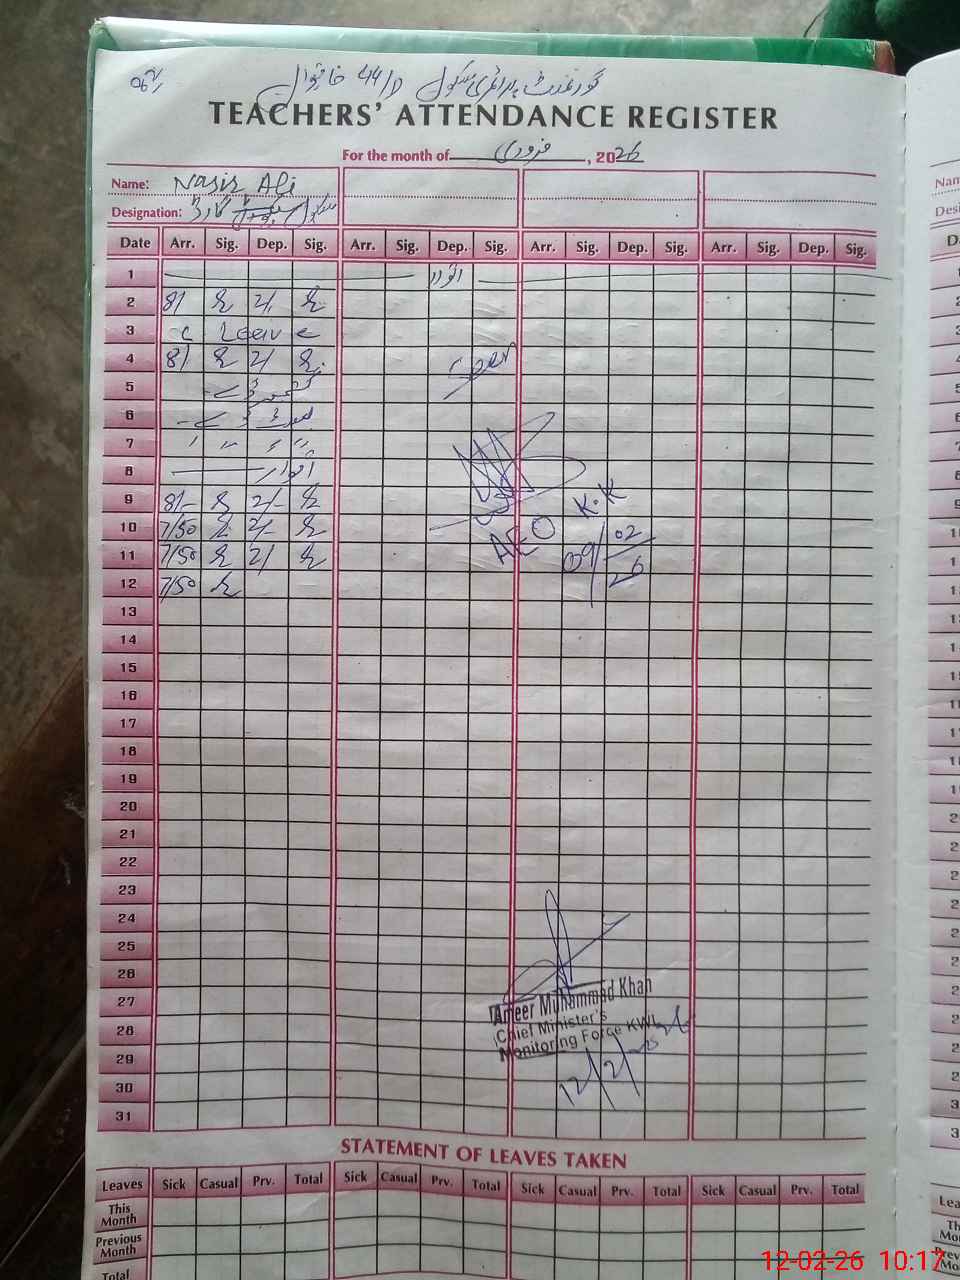 گورنمنٹ پرائمری سکول
TEACHERS' ATTENDANCE REGISTER
For the month of فروری, 2026
Name: Nasir Ali
Designation: سکول سیکیورٹی گارڈ
Date Arr. Sig. Dep. Sig. Arr. Sig. Dep. Sig. Arr. Sig. Dep. Sig. Arr. Sig. Dep. Sig.
1 اتوار
2 8/ 2/
3 C Leave
4 8/ 2/ Seen
5
6
7 " " " "
8 اتوار
9 8/- 2/- K.K
10 7/50 2/- AEO 09/02/26
11 7/50 2/
12 7/50
13
14
15
16
17
18
19
20
21
22
23
24
25
26
27 Ameer Muhammad Khan
28 Chief Minister's
29 Monitoring Force KWL
30 12/2/26
31
STATEMENT OF LEAVES TAKEN
Leaves Sick Casual Prv. Total Sick Casual Prv. Total Sick Casual Prv. Total Sick Casual Prv. Total
This Month
Previous Month
Total
12-02-26 10:17